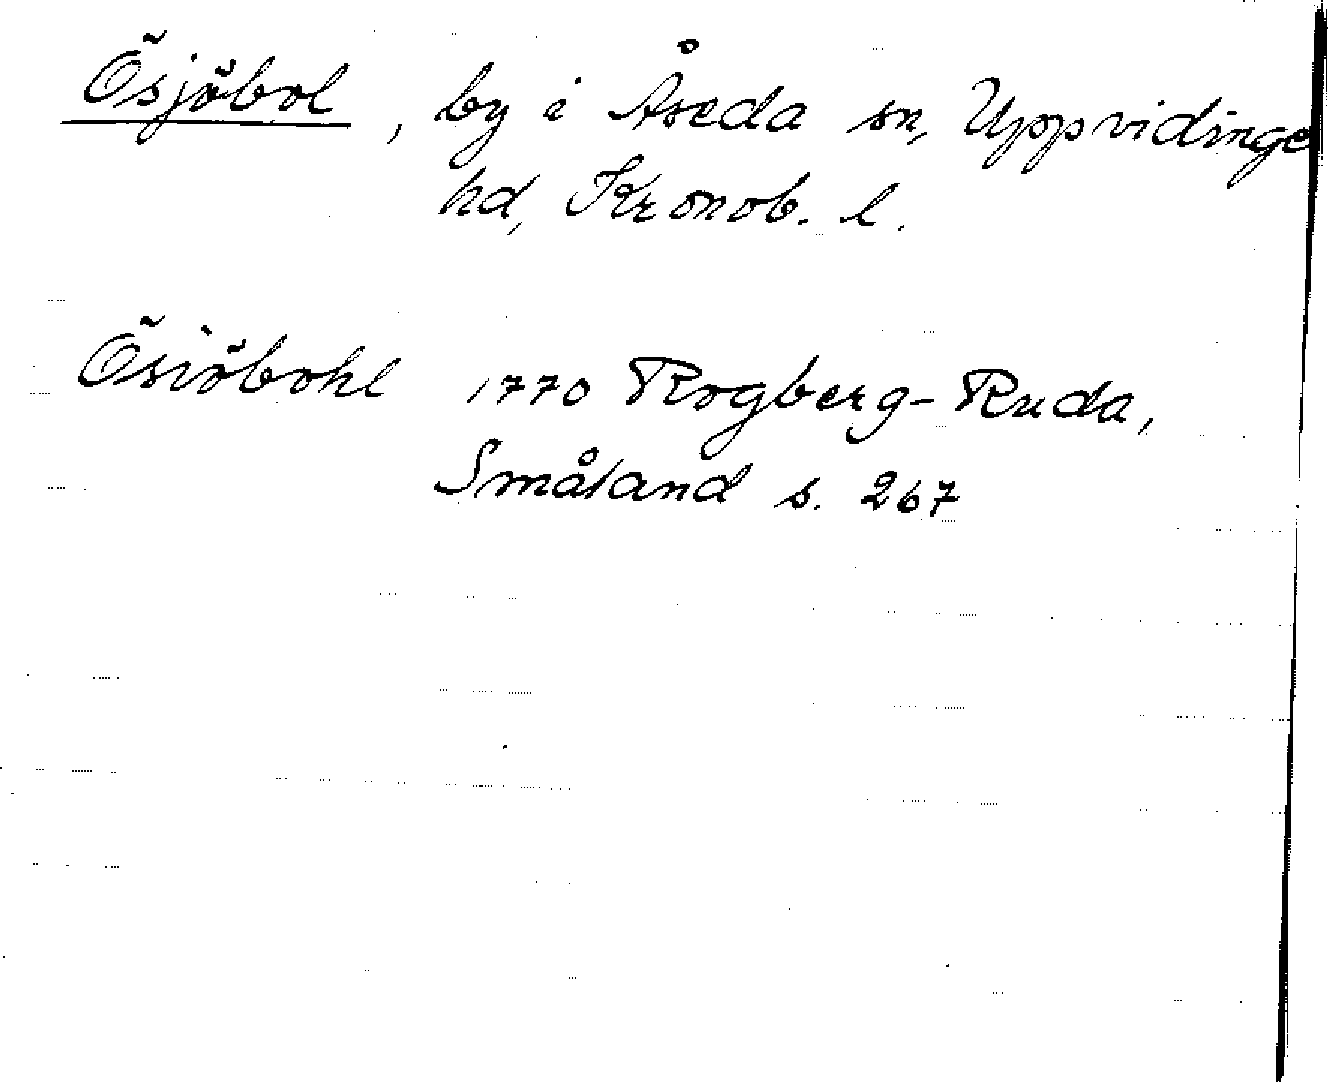 Ösjöbol, by i Åseda sn, Uppvidinge
hd, Kronob. l.
Ösiöbohl 1770 Rogberg-Ruda,
Småland s. 267